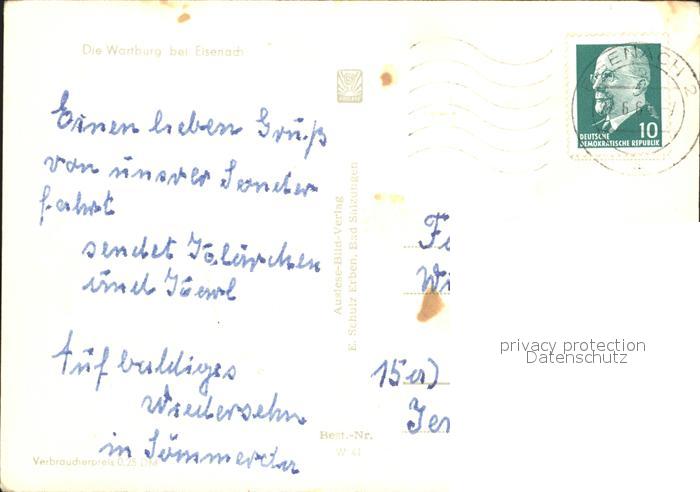 Die Wartburg bei Eisenach
Einen lieben Gruß
von unsrer Sonder
fahrt
sendet Klärchen
und Karl
Auf baldiges
Wiedersehn
in Sömmerda
Verbraucherpreis 0,25 DM
Auslese-Bild-Verlag
E. Schulz Erben, Bad Salzungen
Best.-Nr.
W 41
EISENACH 2
10
DEUTSCHE
DEMOKRATISCHE REPUBLIK
15a)
privacy protection
Datenschutz